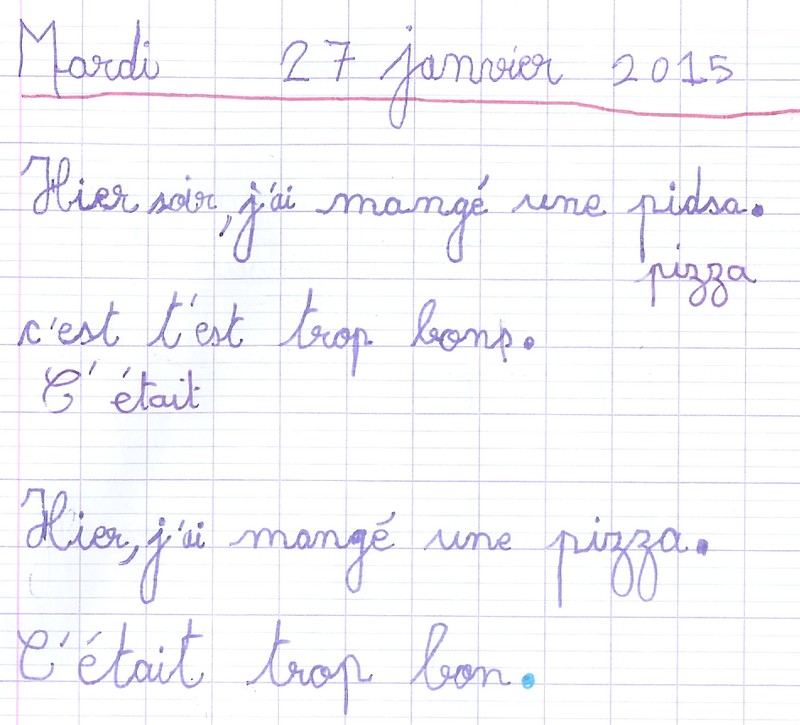 Mardi 27 janvier 2015
Hier soir, j'ai mangé une pidsa.
pizza
c'est t'est trop bons.
C'était
Hier, j'ai mangé une pizza.
C'était trop bon.